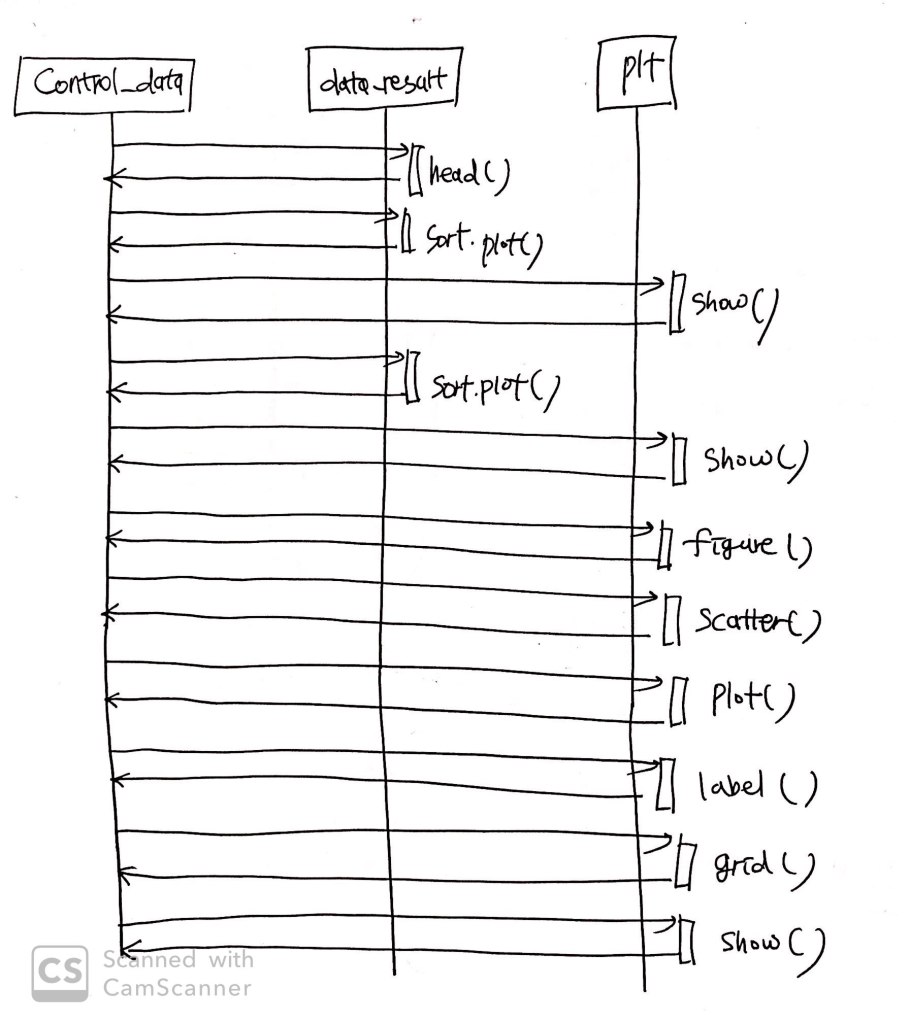 Control_data
data_result
plt
head()
Sort.plot()
Show()
Sort.plot()
Show()
figure()
Scatter()
Plot()
label()
grid()
Show()
CS Scanned with
CamScanner